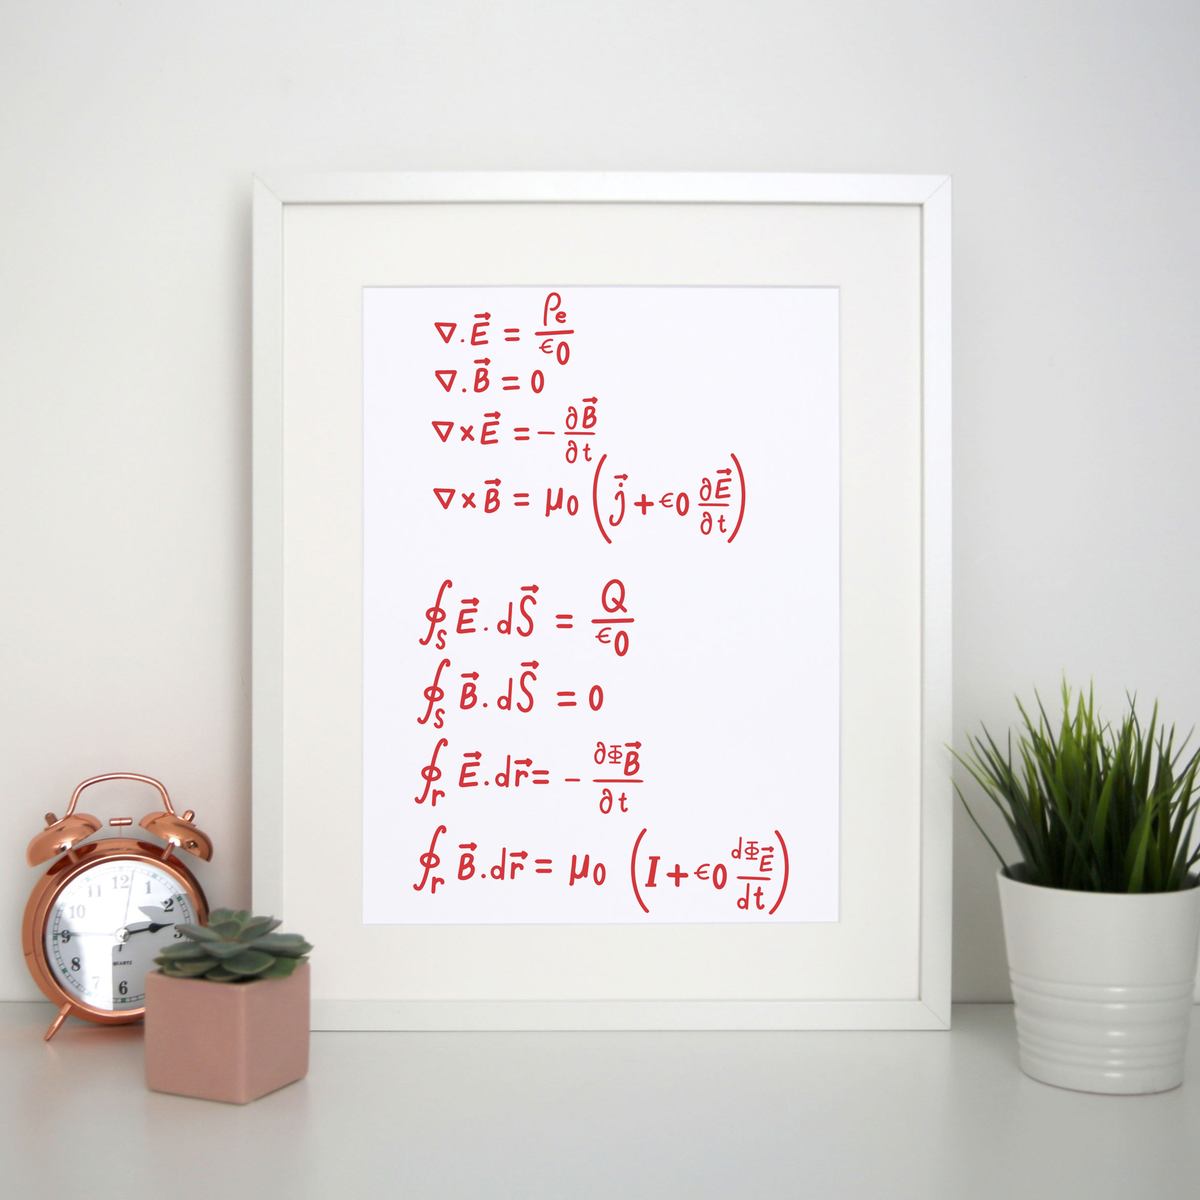 ∇.E⃗ = ρe/ϵ0
∇.B⃗ = 0
∇×E⃗ = − ∂B⃗/∂t
∇×B⃗ = μ0 (j⃗ + ϵ0 ∂E⃗/∂t)
∮S E⃗.dS⃗ = Q/ϵ0
∮S B⃗.dS⃗ = 0
∮r E⃗.dr⃗ = − ∂ΦB⃗/∂t
∮r B⃗.dr⃗ = μ0 (I + ϵ0 dΦE⃗/dt)
11 12 1
10 2
9 3
8
7 6